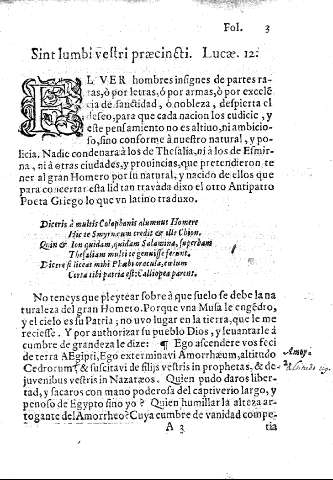 Fol. 3
Sint lumbi vestri præcincti. Lucæ. 12.
EL VER hombres insignes de partes ra-
ras, ò por letras, ó por armas, ò por excelẽ
cia de sanctidad, ò nobleza, despierta el
deseo, para que cada nacion los cudicie, y
este pensamiento no es altiuo, ni ambicio-
so, sino conforme à nuestro natural, y po-
licia. Nadie condenara à los de Thesalia, ni à los de Esmir
na, ni à otras ciudades, y prouincias, que pretendieron te
ner al gran Homero por su natural, y nacido de ellos que
para concertar esta lid tan trauada dixo el otro Antipatro
Poeta Griego lo que vn latino traduxo.
Diceris à multis Colophonis alumnus Homere
Hic te Smyrneum credit & ille Chion,
Quin & Ion quidam, quidam Salamina, superbam
Thesaliam multi te genuisse ferunt.
Dicere si liceat mihi Phœbi oracula, cælum
Certa tibi patria est: Calliopea parent.
No teneys que pleytear sobre à que suelo se debe la na
turaleza del gran Homero. Porque vna Musa le engẽdro,
y el cielo es su Patria; no uvo lugar en la tierra, que le me
reciesse. Y por authorizar su pueblo Dios, y leuantarle à
cumbre de grandeza le dize: ¶ Ego ascendere vos feci
de terra AEgipti, Ego exterminavi Amorrhæum, altitudo
Cedrorum, & suscitavi de filijs vestris in prophetas, & de
juvenibus vestris in Nazaræos. Quien pudo daros liber-
tad, y sacaros con mano poderosa del captiverio largo, y
penoso de Egypto sino yo? Quien humillar la alteza ar-
rogante del Amorrheo? Cuya cumbre de vanidad compe-
A 3
tia